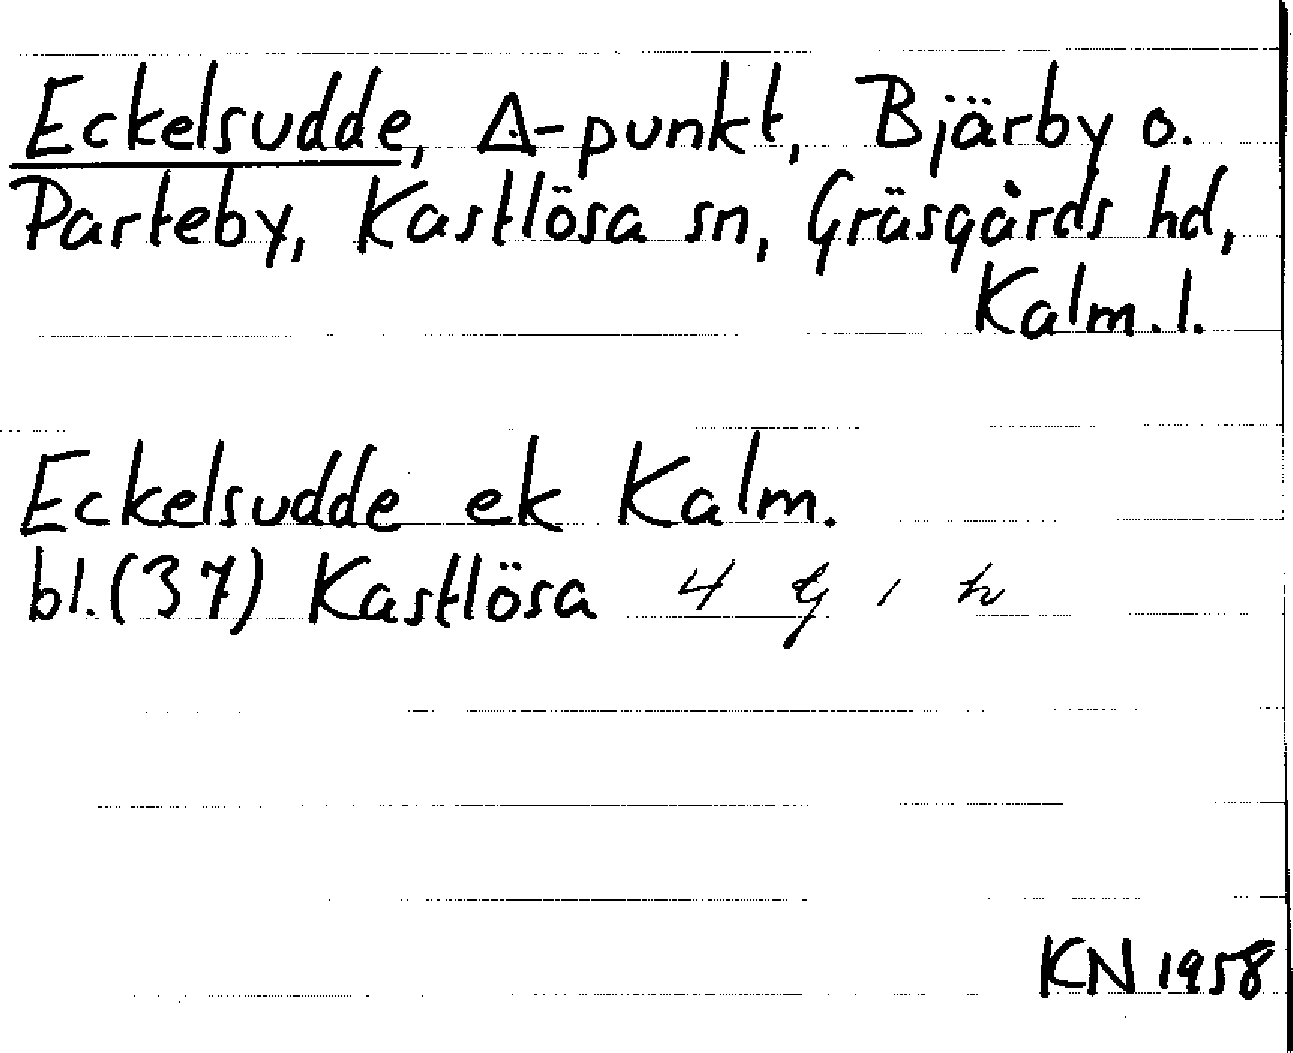 Eckelsudde, Δ-punkt, Bjärby o.
Parteby, Kastlösa sn, Gräsgårds hd,
Kalm. l.
Eckelsudde ek Kalm.
bl. (37) Kastlösa 4
KN 1958